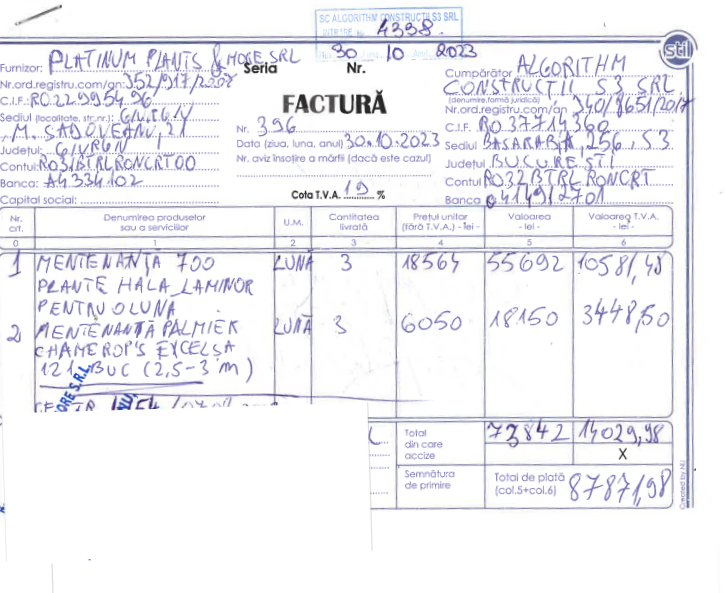 SC ALGORITHM CONSTRUCTII S3 SRL
4398
30 10 2023
Furnizor: PLATINUM PLANTS & MORE SRL
Nr.ord.registru.com/an: J52/917/2008
C.I.F.: RO22995496
Sediul (localitate, str.nr.): GIURGIU
M. SADOVEANU, 21
Județul: GIURGIU
Contul:
Banca:
Capital social:
Seria Nr.
FACTURĂ
Nr. 396
Data (ziua, luna, anul) 30.10.2023
Nr. aviz însoțire a mărfii (dacă este cazul)
Cota T.V.A. 19 %
Cumpărător ALGORITHM
CONSTRUCTII S3 SRL
(denumire, formă juridică)
Nr.ord.registru.com/an J40/8651/2017
C.I.F. RO 37714360
Sediul BASARABIA, 256, S3
Județul BUCUREȘTI
Contul RO32BTRLRONCRT
Banca 0414912701
sti
Nr. crt. Denumirea produselor sau a serviciilor U.M. Cantitatea livrată Prețul unitar (fără T.V.A.) - lei - Valoarea - lei - Valoarea T.V.A. - lei -
0 1 2 3 4 5 6
1 MENTENANȚĂ 700 LUNĂ 3 18564 55692 10581,48
PLANTE HALA LAMINOR
PENTRU O LUNA
2 MENTENANȚĂ PALMIER LUNĂ 3 6050 18150 3448,50
CHAMEROPS EXCELSA
121 BUC (2,5-3 m)
Total din care accize 73842 14029,98
X
Semnătura de primire
Total de plată (col.5+col.6) 87871,98
Created by NU